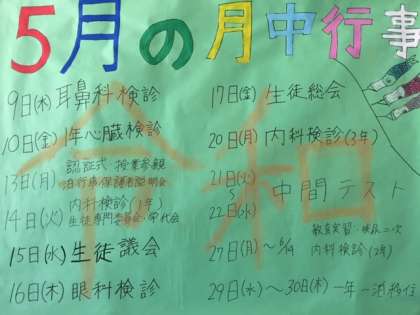 5月の月中行事
9日(木) 耳鼻科検診
10日(金) 1年心臓検診
認証式・授業参観
13日(月)
内科検診(1年)
14日(火) 生徒専門委員会・
15日(水) 生徒議会
16日(木) 眼科検診
17日(金) 生徒総会
20日(月) 内科検診(3年)
21日(火)
〜 中間テスト
22日(水)
教育実習・検尿二次
27日(月)〜6/14 内科検診(2年)
29日(水)〜30日(木) 一年一泊移住
令和